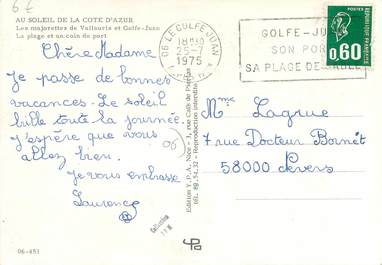 6€
AU SOLEIL DE LA COTE D'AZUR
Les majorettes de Vallauris et Golfe-Juan
La plage et un coin de port
Chère Madame
Je passe de bonnes
vacances. Le soleil
brille toute la journée.
j'espère que vous
allez bien.
Je vous embrasse
Laurence
(06)
Collection
06-451
Edition Y.P.A. Nice - 1, rue Cais de Pierlas
Tél. 89.54.32 - Reproduction interdite
06 LE GOLFE JUAN
25-7
1975
GOLFE-JU
SON POR
SA PLAGE DE SABLE
POSTES
0,60
Mme Lagrue
4 rue Docteur Bornet
58000 Nevers